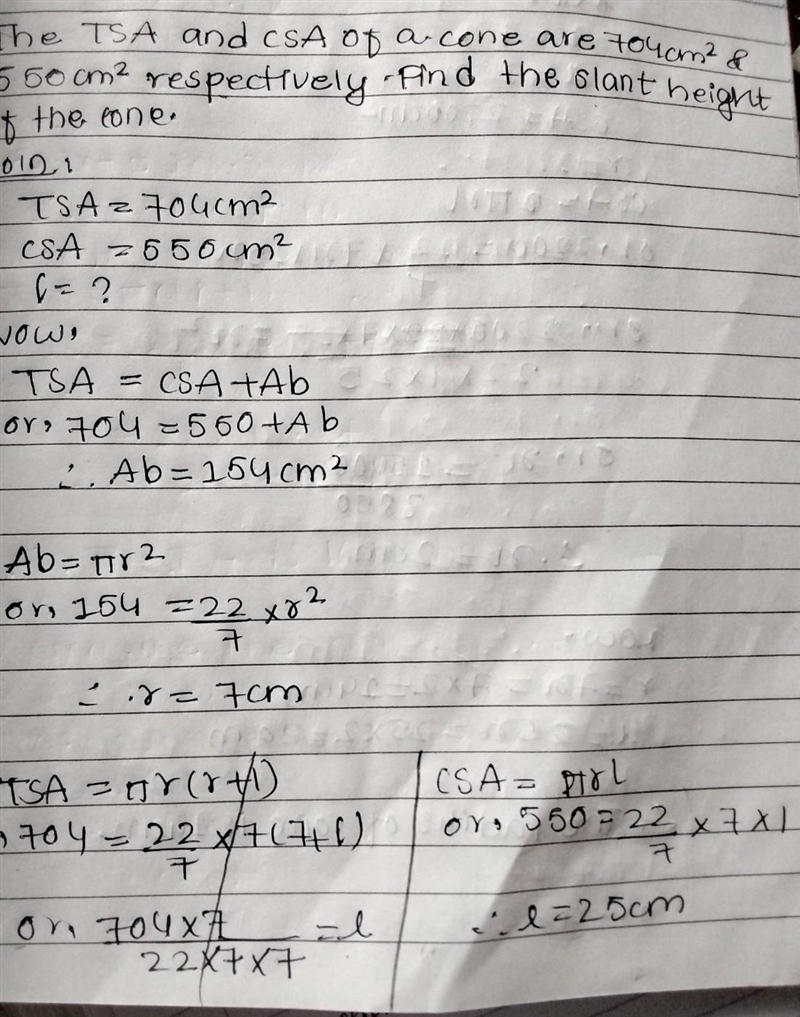 The TSA and CSA of a cone are 704cm² &
550 cm² respectively. Find the slant height
of the cone.
soln:
TSA = 704cm²
CSA = 550cm²
l = ?
Now,
TSA = CSA + Ab
or, 704 = 550 + Ab
∴ Ab = 154cm²
Ab = πr²
or, 154 = 22/7 × r²
∴ r = 7cm
TSA = πr(r+l)
, 704 = 22/7 × 7(7+l)
or, 704×7/22×7×7 = l
CSA = πrl
or, 550 = 22/7 × 7 × l
∴ l = 25cm